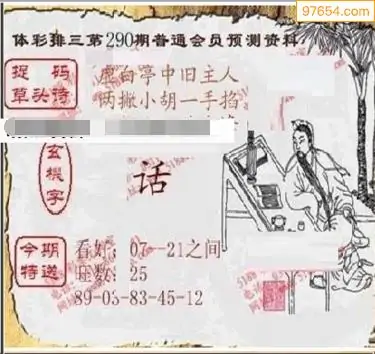 97654.com
体彩排三第290期普通会员预测资料
捉码
草头诗
虚白亭中旧主人
两撇小胡一手掐
玄機字
话
今期
特送
看好:07--21之间
胆数:25
89-05-83-45-12